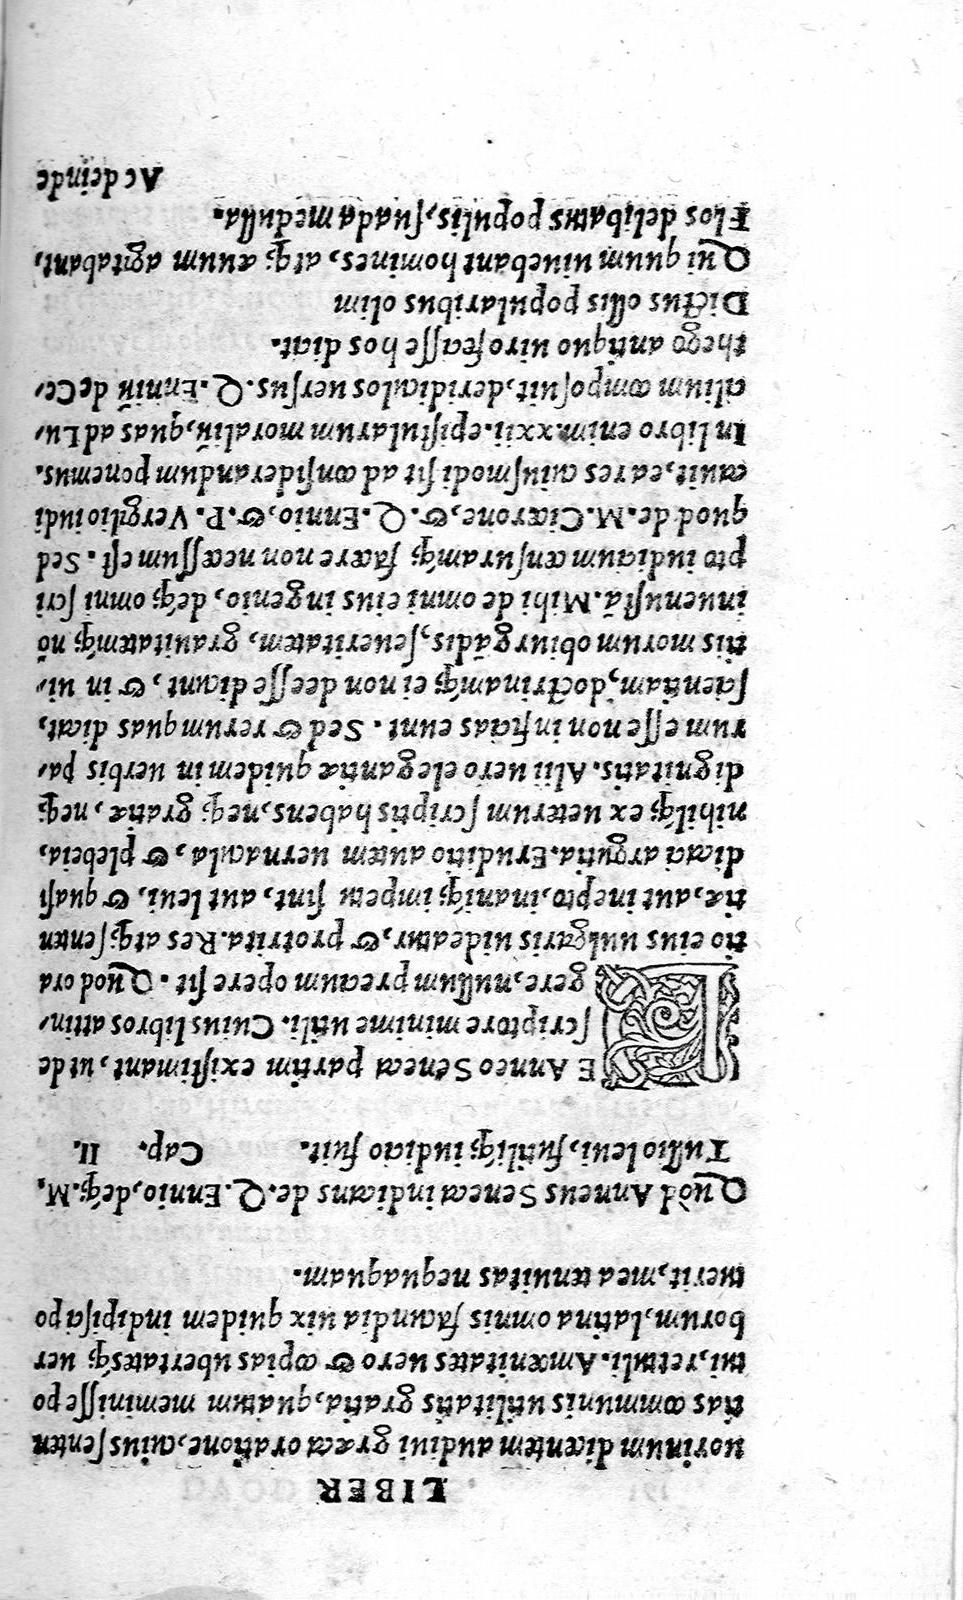 LIBER
uorinum dicentem audiui græca oratione, cuius senten
tias communis utilitatis gratia, quãtum meminisse po
tui, rettuli. Amœnitates uero & copias ubertatesq́; uer
borum, latina omnis facundia uix quidem indipisci po
tuerit, mea tenuitas nequaquam.
Quòd Anneus Seneca indicans de. Q. Ennio, deq́;. M.
Tullio leui, futiliq́; iudicio fuit. Cap. II.
E Anneo Seneca partim existimant, ut de
scriptore minime utili. Cuius libros attin/
gere, nullum precium opere sit. Quod ora
tio eius uulgaris uideatur, & protrita. Res atq́; senten
tiæ, aut inepto, inaniq́; impetu sint, aut leui, & quasi
dicaci argutia. Eruditio autem uernacula, & plebeia,
nihilq́; ex ueterum scriptis habens, neq́; gratiæ, neq́;
dignitatis. Alii uero elegantiæ quidem in uerbis pa/
rum esse non inficias eunt. Sed & rerum quas dicat,
scientiam, doctrinamq́; ei non deesse dicunt, & in ui/
tiis morum obiurgãdis, seueritatem, grauitatemq́; nõ
inuenustã. Mihi de omni eius ingenio, deq́; omni scri
pto iudicium censuramq́; facere non necessum est. Sed
quod de. M. Cicerone, &. Q. Ennio, &. P. Vergilio iudi
cauit, ea res cuiusmodi sit ad considerandum ponemus.
In libro enim. xxii. epistularum moraliũ, quas ad Lu/
cilium composuit, deridiculos uersus. Q. Enniũ de Ce/
thego antiquo uiro fecisse hos dicit.
Dictus ollis popularibus olim
Qui quum uiuebant homines, atq́; æuum agitabant,
Flos delibatus populis, suada medulla.
Ac deinde